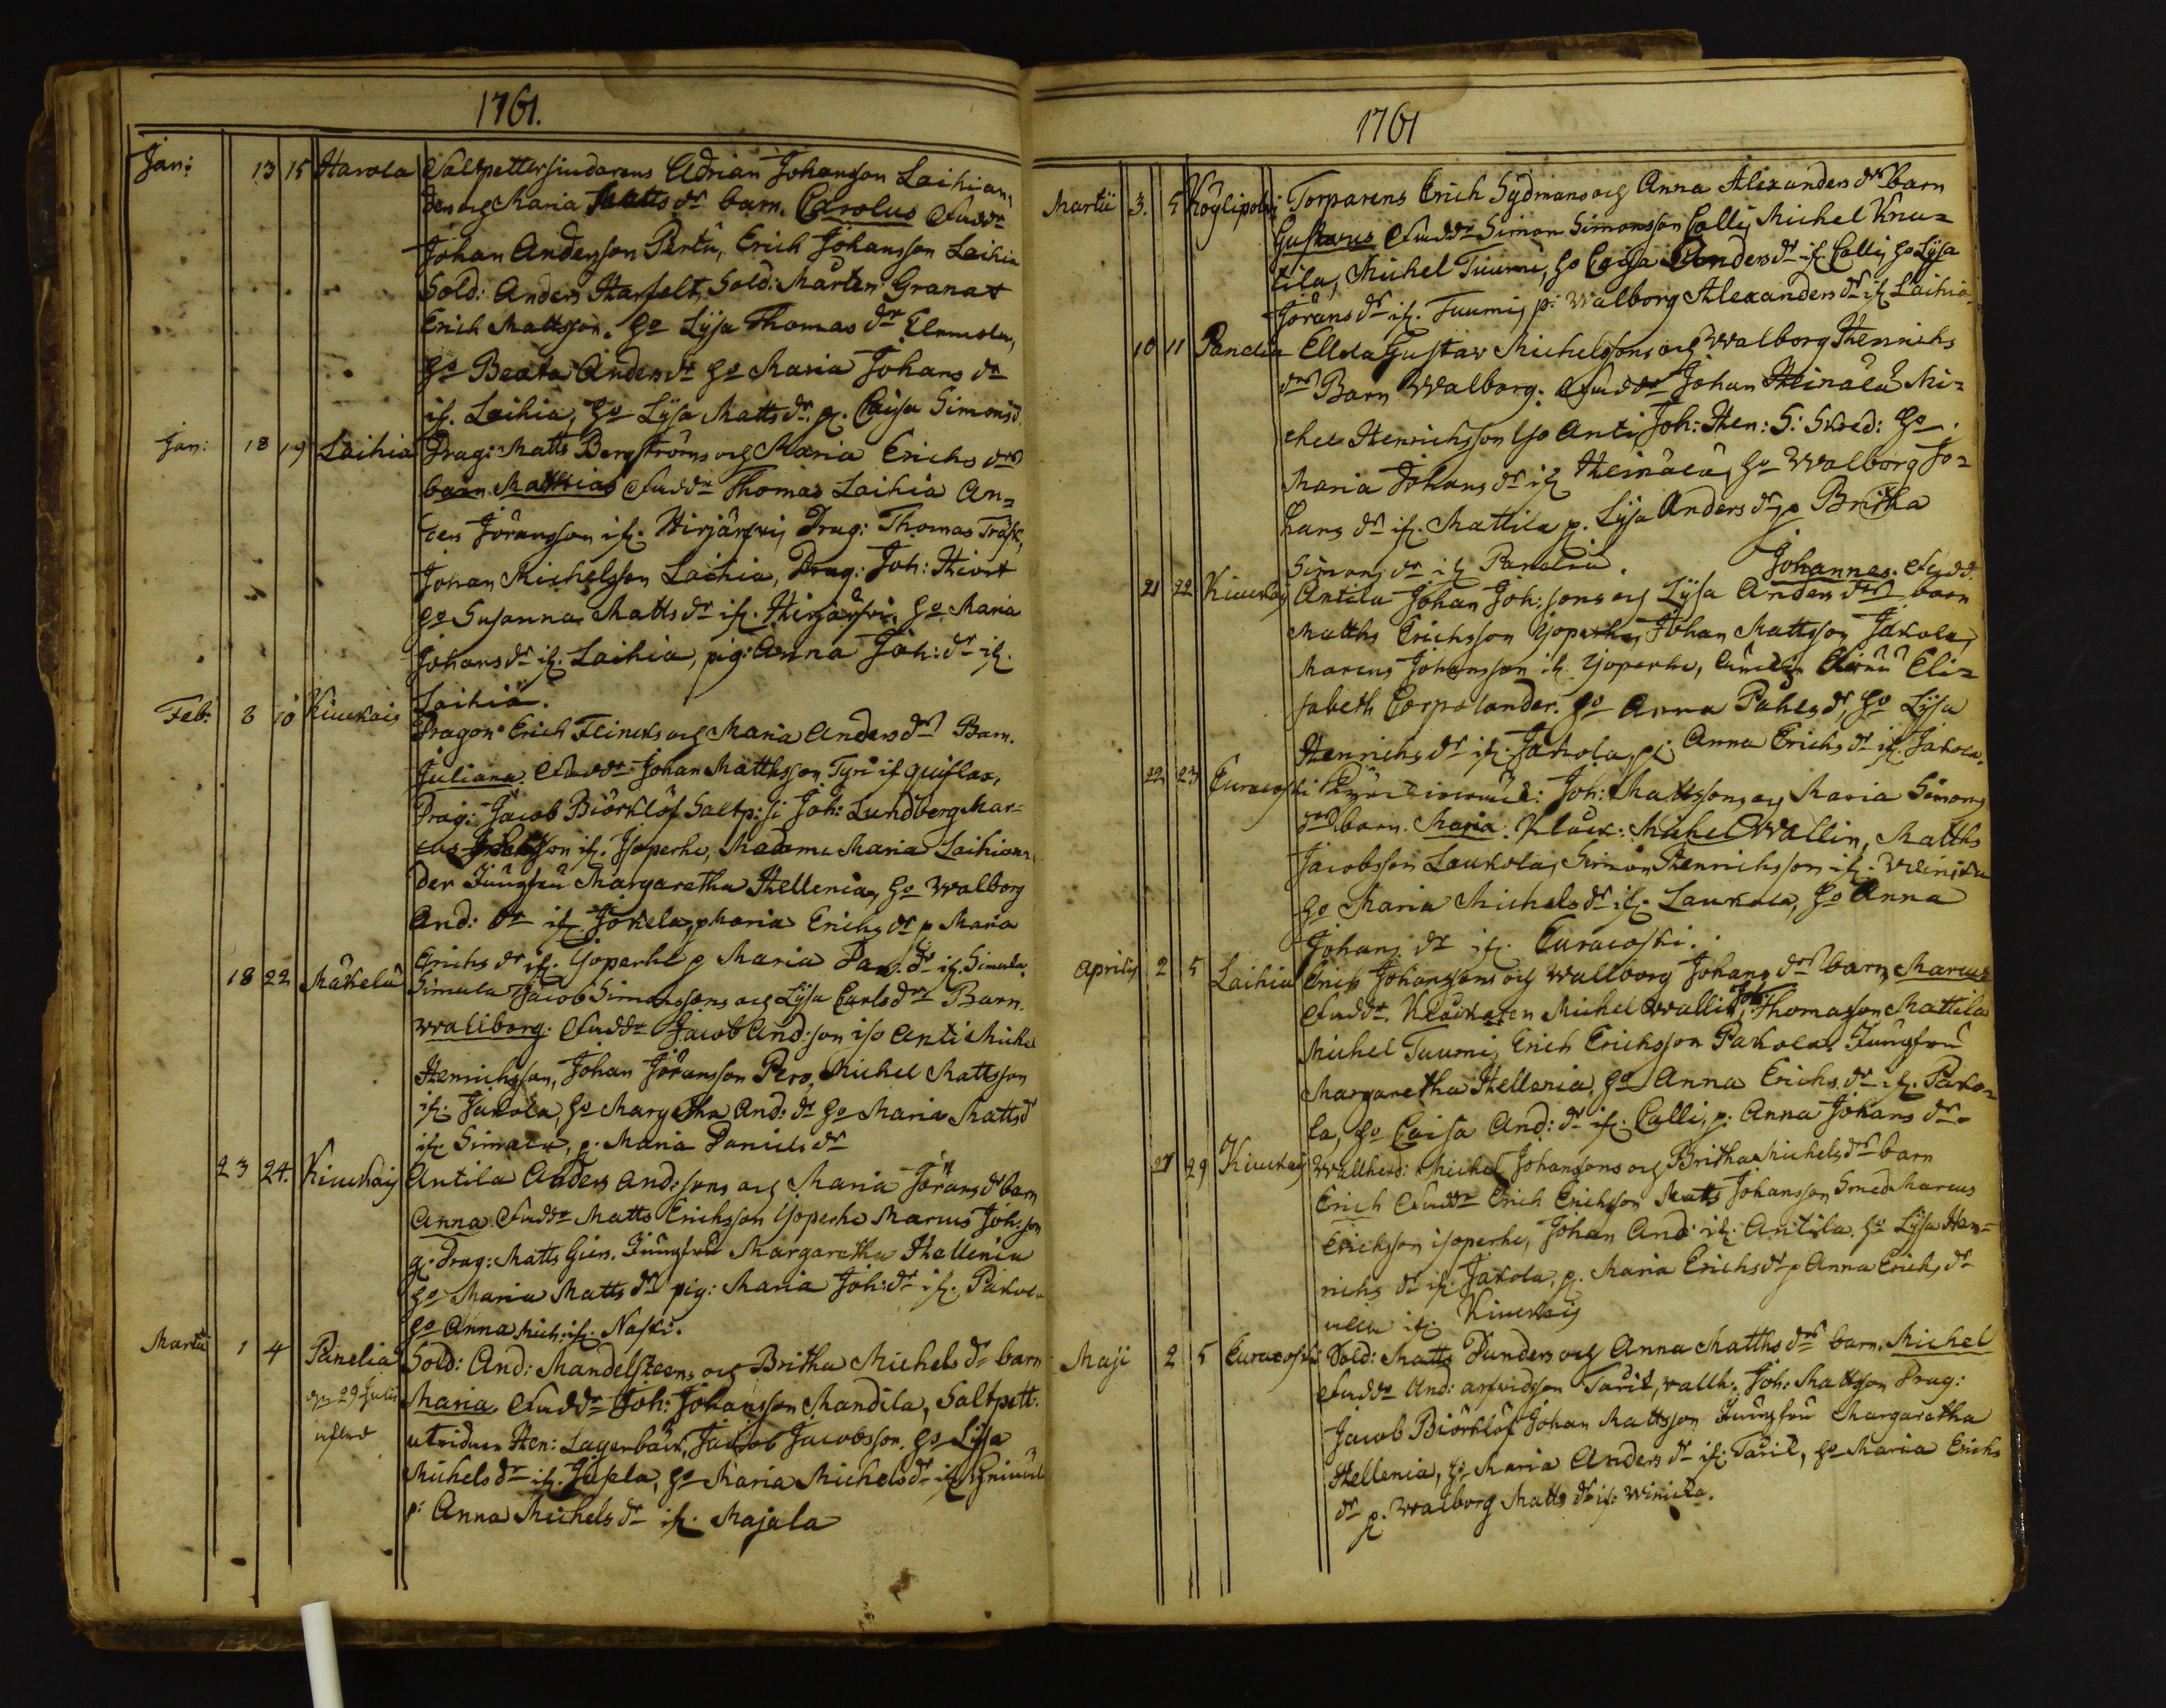 1761.
Jan: 13 15 Harola Saltpettersjudarens Adrian Johanson Laihian,
ders och Maria Matts dr barn. Carolus Fadd:
Johan Andersson Pertu, Erich Johansson Laihia
Sold: Anders Harfelt, Sold: Mårten Granat
Erich Mattsson. ho Lysa Thomas dr
ho Beata Anders dr ho Maria Johans dr
if. Laihia, ho Lysa Matts dr p. Caisa Simons d
Jan: 18 19 Laihia Drag: Matts Bergströms och Maria Erichs dr
barn. Mathias Fadd: Thomas Laihia An=
ders Jöransson if. Hirjärfvi, Drag: Thomas Träsk,
Johan Michelsson Laihia, Drag: Joh: Hiort
ho Susanna Matts dr if. Hirjärfvi. ho Maria
Johans dr if. Laihia, pig: Anna Joh: dr if.
Laihia.
Feb: 8 10 Kiuckais Dragon Erich Feincks och Maria Anders dr Barn.
Juliana. Fadd: Johan Matthsson Tyri if
Drag: Jacob Biörklöf Saltp: si Joh: Lundberg Mar=
cus if. Yoperhe, Madame Maria Laihian,
der Jungfru Margaretha Hellenia, ho Walborg
And: dr if. Jokela, p Maria Erichs dr p Maria
Erichs dr if. Yoperhe p Maria Dan: dr if. Simula.
18 22 Mäkelä Simula Jacob Simonssons och Lysa Carls dr Barn.
Wallborg. Fadd: Jacob And:son Antti Michel
Henrichsson, Johan Jöransson Pero, Michel Mattsson
if. Jakola, ho Margetha And: dr ho Maria Matts d
if. Simala, p. Maria Daniels dr
23 24. Kiuckais Antila Anders And:sons och Maria Jörans dr barn
Anna. Fadd: Matts Erichsson Yoperhe Marcus Joh:son
Drag: Matts Giers. Jungfru Margaretha Hallenia
ho Maria Matts dr pig: Maria Joh: dr if. Pakola
ho Anna Mich: if. Naski.
Martii 1 4 Panelia Sold: And: Mandelsteens och Britha Michels dr barn
29 Julii Maria. Fadd: Joh: Johansson Mandila, Saltpett:
Hen: Lagerbäck, Jacob Jacobsson. ho Lysa
Michels dr if. Jusela, ho Maria Michels dr if.
p: Anna Michels dr if. Majala
1761
Martii 3. 5 Köylipolvi Torparens Erich Sydmans och Anna Alexanders dr barn
Gustavus Fadd: Simon Simonsson Calli, Michel Knu=
tila, Michel Tuumi, ho Caisa Anders dr if. Calli, ho Lysa
Jörans dr if. Tuumi, p: Walborg Alexanders dr if. Laihia.
10 11 Panelia Ellda Gustav Michelssons och Walborg Henrichs
dr Barn Walborg. Fadd: Johan Heinälä Mi=
chel Henrichsson Yo Anti, Joh: Hen: S: Skred: ho
Maria Johans dr if. Heinälä, ho Walborg Jo=
hans dr if. Mattila p. Lysa Anders dr p Britha
Simons dr if. Panelia.
Johannes. Fadd.
21 22 Kiuckais Antila Johan Joh:sons och Lysa Anders dr barn
Matths Erichsson Yoperhe, Johan Mattsson Jakola,
Marcus Johansson if. Yoperhe, Eli=
sabeth Corpolander. ho Anna Påhls dr, ho Lysa
Henrichs dr if. Jakola, p: Anna Erichs dr if. Jakola.
22 23 Euracoski Joh: Mattssons och Maria Simons
dr barn. Maria. Klock: Michel Wallin, Matths
Jacobsson Laukola, Simon Henrichsson if.
ho Maria Michels dr if. Laukola, ho Anna
Johans dr if. Euracoski.
Aprilis 2 5 Laihia Erich Johanssons och Wallborg Johans dr barn, Marcus
Fadd: Klockaren Michel Wallin, Joh: Thomasson Mattila
Michel Tuumi, Erich Erichsson Pakola. Jungfru
Margaretha Hellenia, ho Anna Erichs dr if. Pako=
la, ho Caisa And: dr if. Calli, p: Anna Johans dr
27 29 Kiuckais Wallherd: Michel Johanssons och Britha Michels dr barn
Erich Fadd: Erich Erichsson Matts Johansson Smed Marcus
Erichsson Yoperhe, Johan And: if. Antila. ho Lysa Hen=
richs dr if. Jakola, p. Maria Erichs dr p Anna Erichs dr
if. Kiuckais
Maji 2 5 Euracoski Sold: Matts Dunders och Anna Matths dr barn. Michel
Fadd: And: Arfvidsson Tacil, vallh: Joh: Mattsson Drag:
Jacob Biörklöf Johan Mattsson Jungfru Margaretha
Hellenia, ho Maria Anders dr if. Tacil, ho Maria Erichs
dr p. Walborg Matts dr if: Winicka.